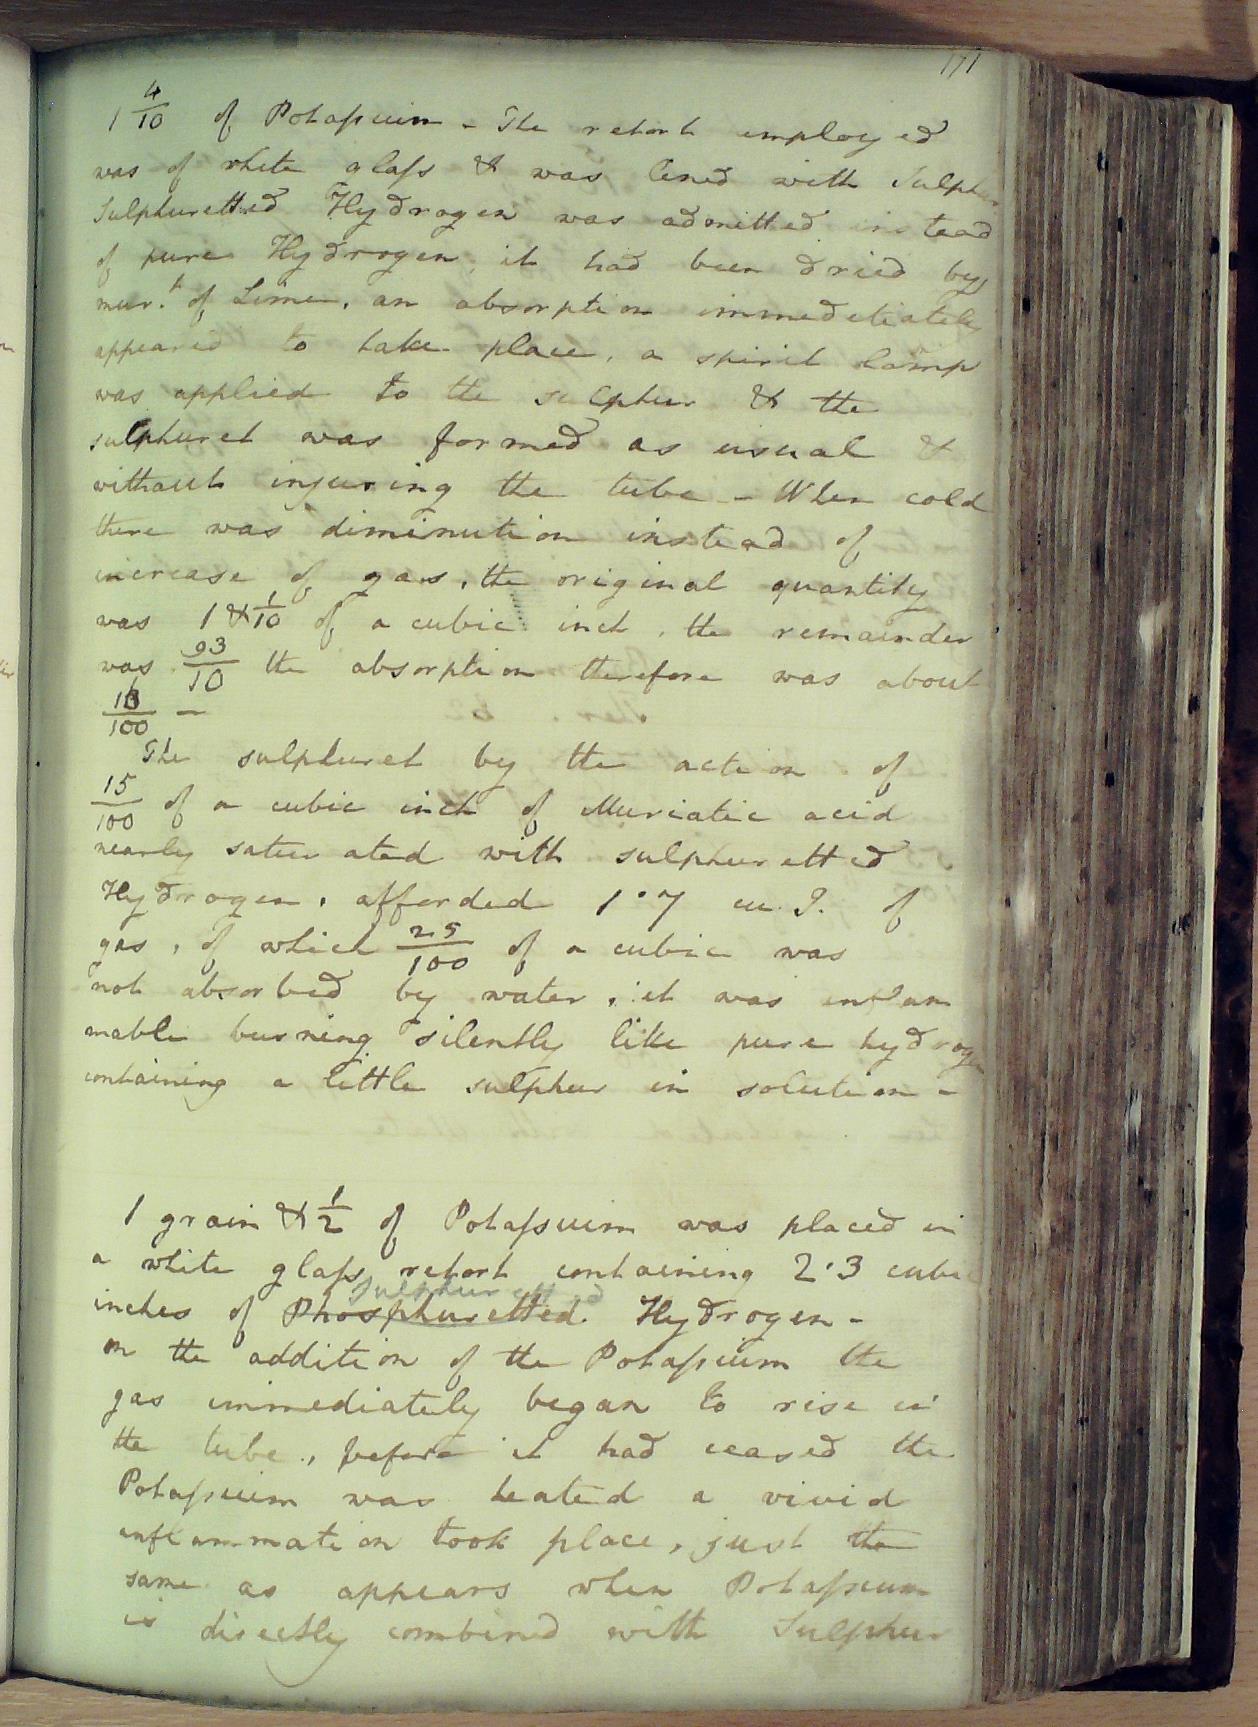 171
1 4/10 of Potaſsium - The retort employed
was of white glaſs & was lined with Sulph
Sulphuretted Hydrogen was admitted instead
of pure Hydrogen, it had been dried by
mur.t of Lime, an absorption immedetiately
appeared to take place, a spirit lamp
was applied to the sulphur & the
sulphuret was formed as usual &
without injuring the tube - When cold
there was diminution instead of
increase of gas, the original quantity
was 1 & 1/10 of a cubic inch, the remainder
was 93/10 the absorption therefore was about
/100 -
The sulphuret by the action of
15/100 of a cubic inch of Muriatic acid
nearly saturated with sulphuretted
Hydrogen, afforded 1·7 cu. I. of
gas, of which 25/100 of a cubic was
not absorbed by water, it was inflam
mable burning silently like pure hydrogen
containing a little sulphur in solution -
1 grain & 1/2 of Potaſsuim was placed in
a white glaſs retort containing 2·3 cubic
Sulphuretted
inches of Phosphuretted Hydrogen -
on the addition of the Potaſsium the
gas immediately began to rise in
the tube, before it had ceased the
Potaſsuim was heated a vivid
inflammation took place, just the
same as appears when Potaſsium
is directly combined with Sulphur